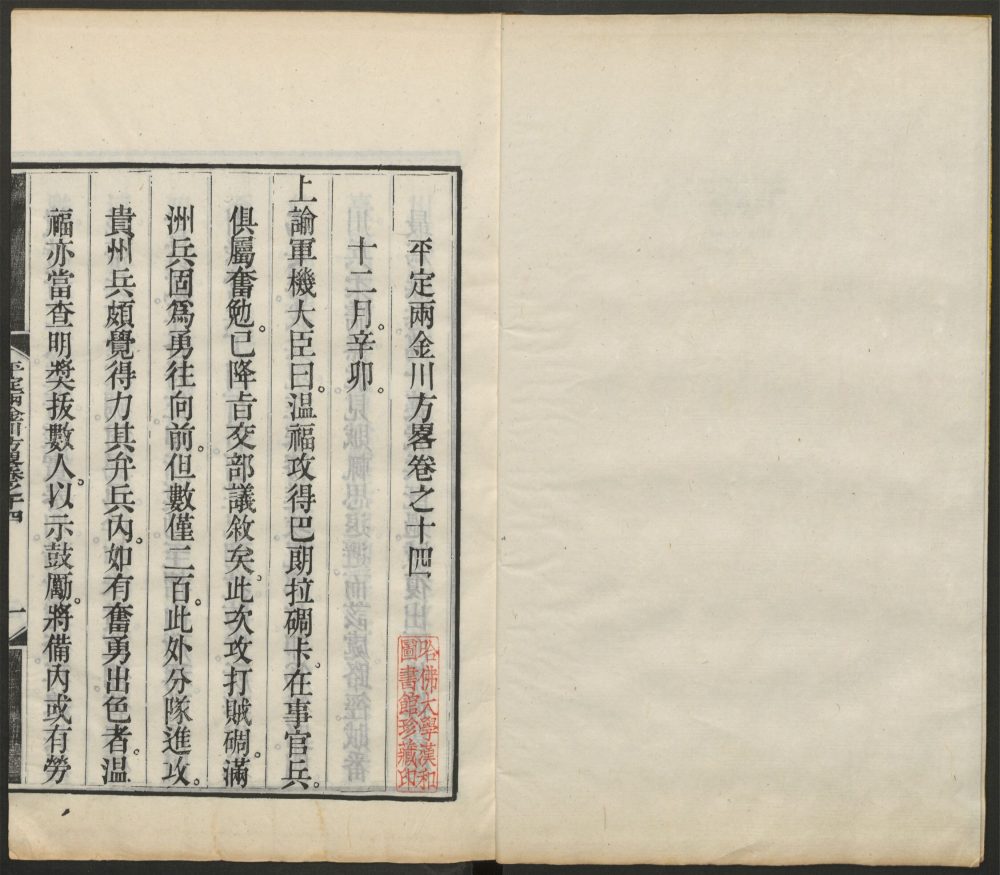 平定兩金川方畧卷之十四
哈佛大學漢和
圖書館珍藏印
十二月。辛卯。
上諭軍機大臣曰。溫福攻得巴朗拉碉卡。在事官兵。
俱屬奮勉。已降旨交部議敘矣。此次攻打賊碉。滿
洲兵固爲勇往向前。但數僅二百。此外分隊進攻。
貴州兵頗覺得力其弁兵內。如有奮勇出色者。溫
福亦當查明奬拔數人。以示鼓勵。將備內或有勞
平定兩金川方畧卷之十四
一